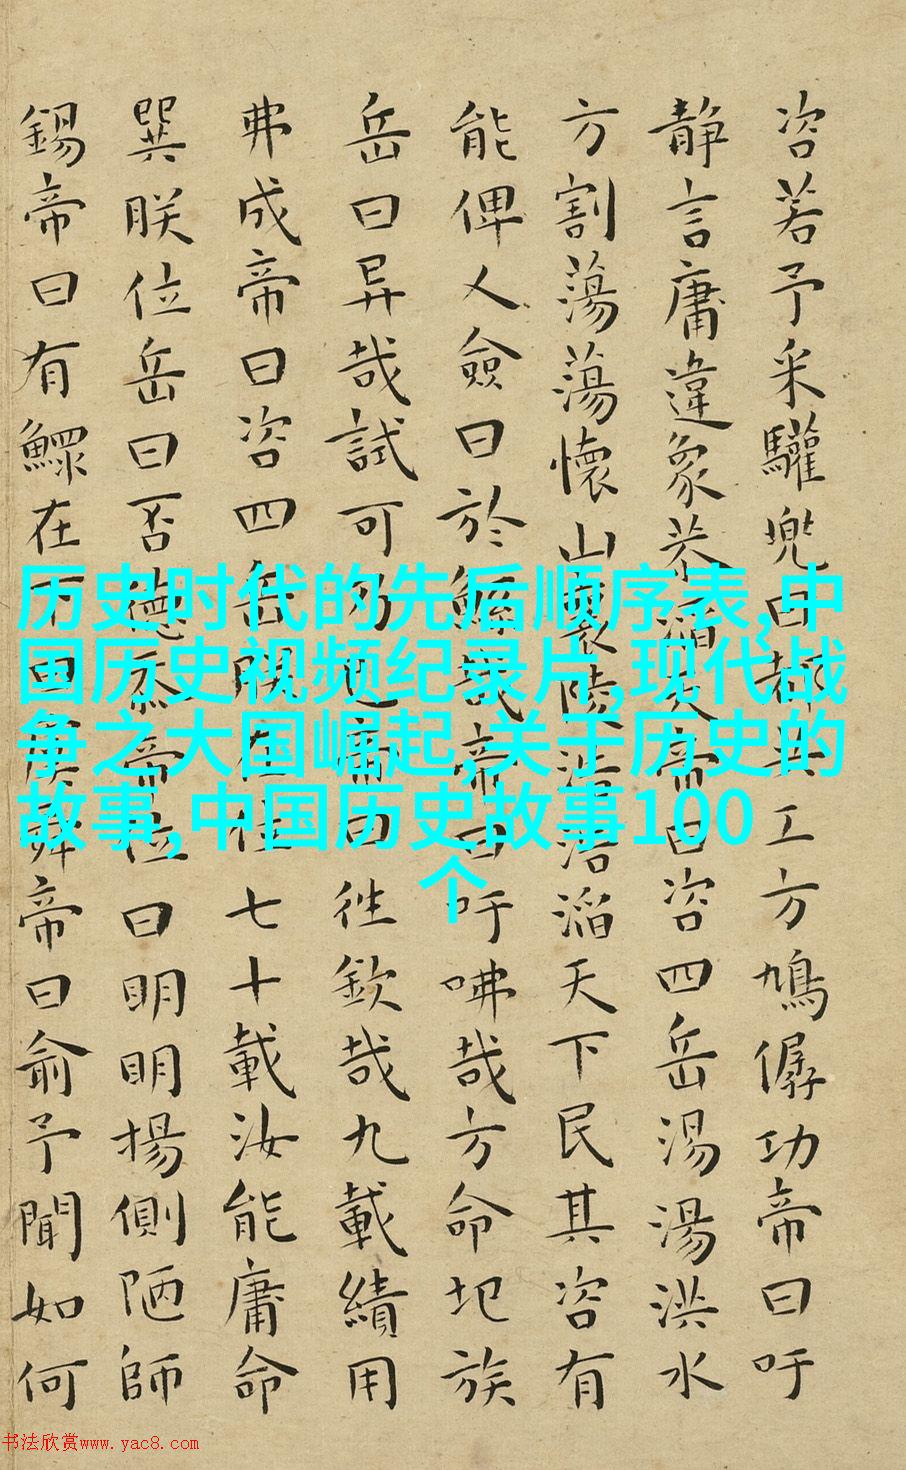 咨若予采驩兜曰都共工方鳩僝功帝曰吁
静言庸違象恭滔天帝曰咨四岳湯湯洪水
方割蕩蕩懷山襄陵浩浩滔天下民其咨有
能俾乂僉曰於鯀哉帝曰吁咈哉方命圮族
岳曰异哉試可乃已帝曰往欽哉九載績用
弗成帝曰咨四岳朕在位七十載汝能庸命
巽朕位岳曰否德忝帝位曰明明揚側陋師
錫帝曰有鰥在下曰虞舜帝曰俞予聞如何
历史时代的先后顺序表,中
国历史视频纪录片,现代战
争之大国崛起,关于历史的
故事,中国历史故事100
个
书法欣赏www.yac8.com